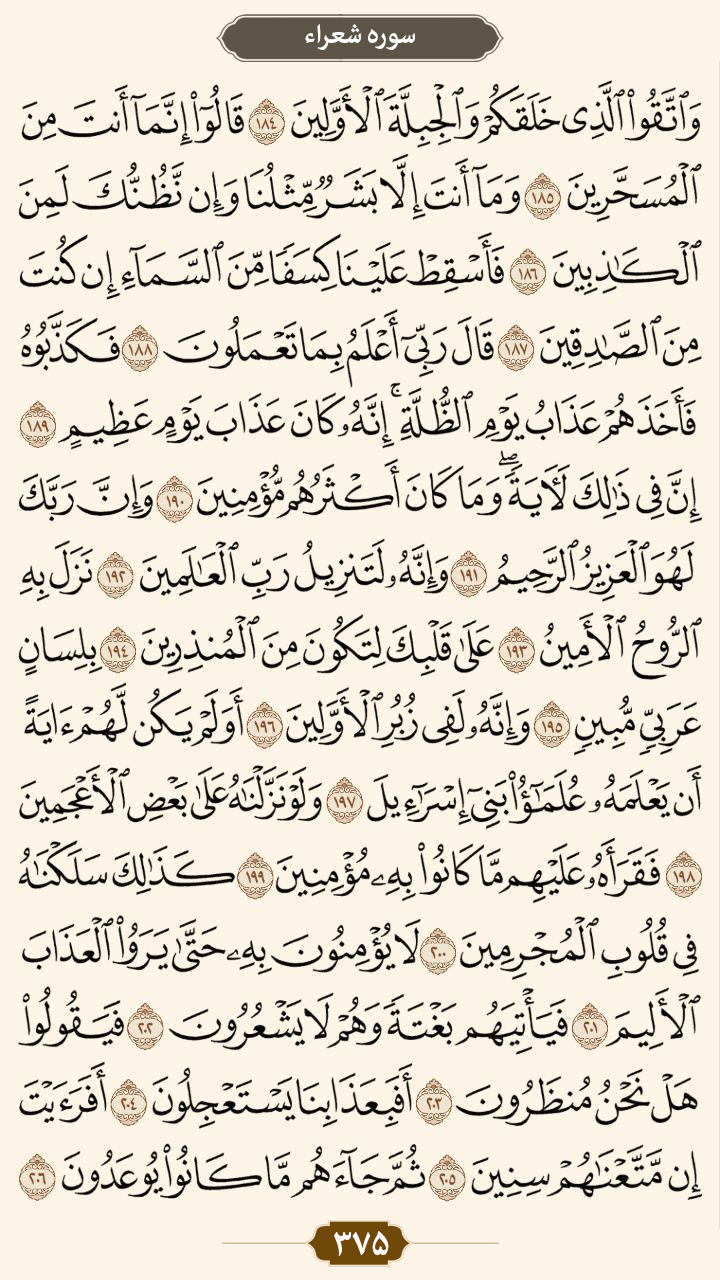 سوره شعراء
وَٱتَّقُواْ ٱلَّذِى خَلَقَكُمْ وَٱلْجِبِلَّةَ ٱلْأَوَّلِينَ ١٨٤ قَالُوٓاْ إِنَّمَآ أَنتَ مِنَ
ٱلْمُسَحَّرِينَ ١٨٥ وَمَآ أَنتَ إِلَّا بَشَرٌ مِّثْلُنَا وَإِن نَّظُنُّكَ لَمِنَ
ٱلْكَٰذِبِينَ ١٨٦ فَأَسْقِطْ عَلَيْنَا كِسَفًا مِّنَ ٱلسَّمَآءِ إِن كُنتَ
مِنَ ٱلصَّٰدِقِينَ ١٨٧ قَالَ رَبِّىٓ أَعْلَمُ بِمَا تَعْمَلُونَ ١٨٨ فَكَذَّبُوهُ
فَأَخَذَهُمْ عَذَابُ يَوْمِ ٱلظُّلَّةِ ۚ إِنَّهُۥ كَانَ عَذَابَ يَوْمٍ عَظِيمٍ ١٨٩
إِنَّ فِى ذَٰلِكَ لَأَيَةً ۖ وَمَا كَانَ أَكْثَرُهُم مُّؤْمِنِينَ ١٩٠ وَإِنَّ رَبَّكَ
لَهُوَ ٱلْعَزِيزُ ٱلرَّحِيمُ ١٩١ وَإِنَّهُۥ لَتَنزِيلُ رَبِّ ٱلْعَٰلَمِينَ ١٩٢ نَزَلَ بِهِ
ٱلرُّوحُ ٱلْأَمِينُ ١٩٣ عَلَىٰ قَلْبِكَ لِتَكُونَ مِنَ ٱلْمُنذِرِينَ ١٩٤ بِلِسَانٍ
عَرَبِىٍّ مُّبِينٍ ١٩٥ وَإِنَّهُۥ لَفِى زُبُرِ ٱلْأَوَّلِينَ ١٩٦ أَوَلَمْ يَكُن لَّهُمْ ءَايَةً
أَن يَعْلَمَهُۥ عُلَمَٰٓؤُاْ بَنِىٓ إِسْرَٰٓءِيلَ ١٩٧ وَلَوْ نَزَّلْنَٰهُ عَلَىٰ بَعْضِ ٱلْأَعْجَمِينَ
١٩٨ فَقَرَأَهُۥ عَلَيْهِم مَّا كَانُواْ بِهِۦ مُؤْمِنِينَ ١٩٩ كَذَٰلِكَ سَلَكْنَٰهُ
فِى قُلُوبِ ٱلْمُجْرِمِينَ ٢٠٠ لَا يُؤْمِنُونَ بِهِۦ حَتَّىٰ يَرَوُاْ ٱلْعَذَابَ
ٱلْأَلِيمَ ٢٠١ فَيَأْتِيَهُم بَغْتَةً وَهُمْ لَا يَشْعُرُونَ ٢٠٢ فَيَقُولُواْ
هَلْ نَحْنُ مُنظَرُونَ ٢٠٣ أَفَبِعَذَابِنَا يَسْتَعْجِلُونَ ٢٠٤ أَفَرَءَيْتَ
إِن مَّتَّعْنَٰهُمْ سِنِينَ ٢٠٥ ثُمَّ جَآءَهُم مَّا كَانُواْ يُوعَدُونَ ٢٠٦
۳۷۵